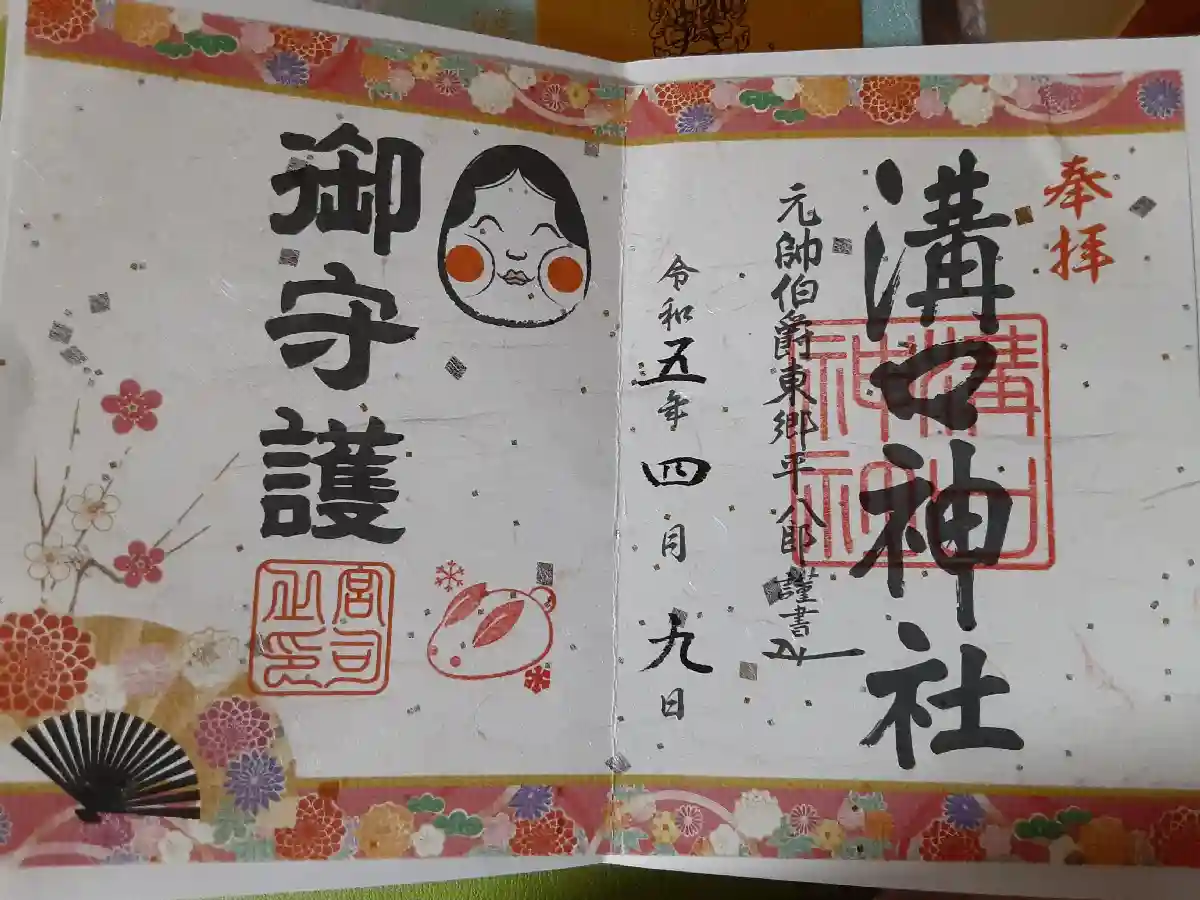 奉拝
溝口神社
溝口神社印
元帥伯爵東郷平八郎謹書
令和五年四月九日
御守護
宮司之印